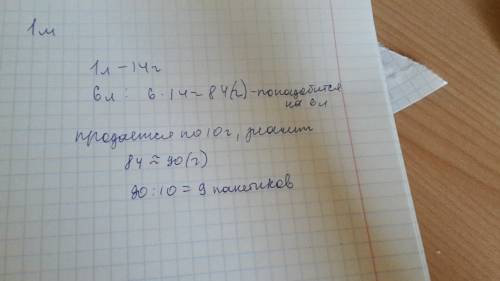 1м
1л – 14 г
6л : 6 · 14 = 84(г) – понадобится
на 6 л
продается по 10 г, значит
84 ≈ 90 (г)
90 : 10 = 9 пакетиков